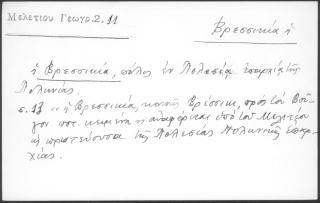 Μελετίου Γεωγρ. 2. 11
Βρεσσικία ἡ
ἡ Βρεσσικία, πόλις ἐν Πολεσίᾳ ἐπαρχίᾳ τῆς
Πολωνίας.
σ. 13 " ἡ Βρεσσικία, κοινῶς Βρέσικι, πρὸς τὸν Βού-
γον ποτ. κειμένη, ἀναφέρεται ὑπὸ τοῦ Μελετίου
ὡς πρωτεύουσα τῆς Πολεσίας Πολωνικῆς ἐπαρ-
χίας.